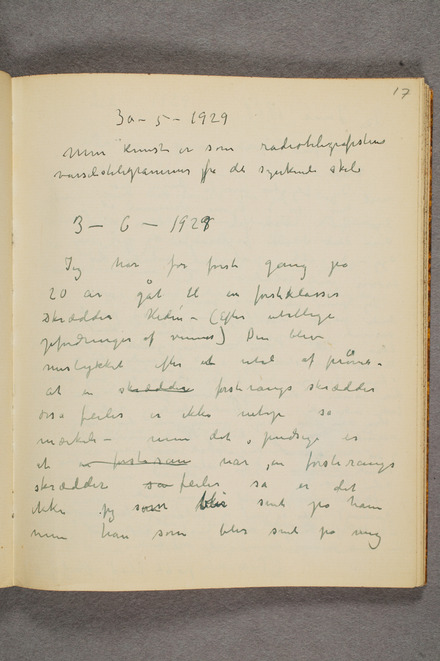 17
30 - 5 - 1929
Min kunst er som radiotelegrafistens
varselstelegrammer fra de synkende skib
3 - 6 - 1929
Jeg har for første gang på
20 år gåt til en førsteklasses
skrædder Hedin - (efter utallige
opfordringer af venner) Den blev
mislykket efter et utal af prøver -
at en skrædder førsterangs skrædder
osså feiler er ikke netop så
mærkeli - men det, pudsige er
at en førsteran når en førsterangs
skrædder så feiler så er det
ikke jeg som blir sint på ham
men han som blir sint på mig